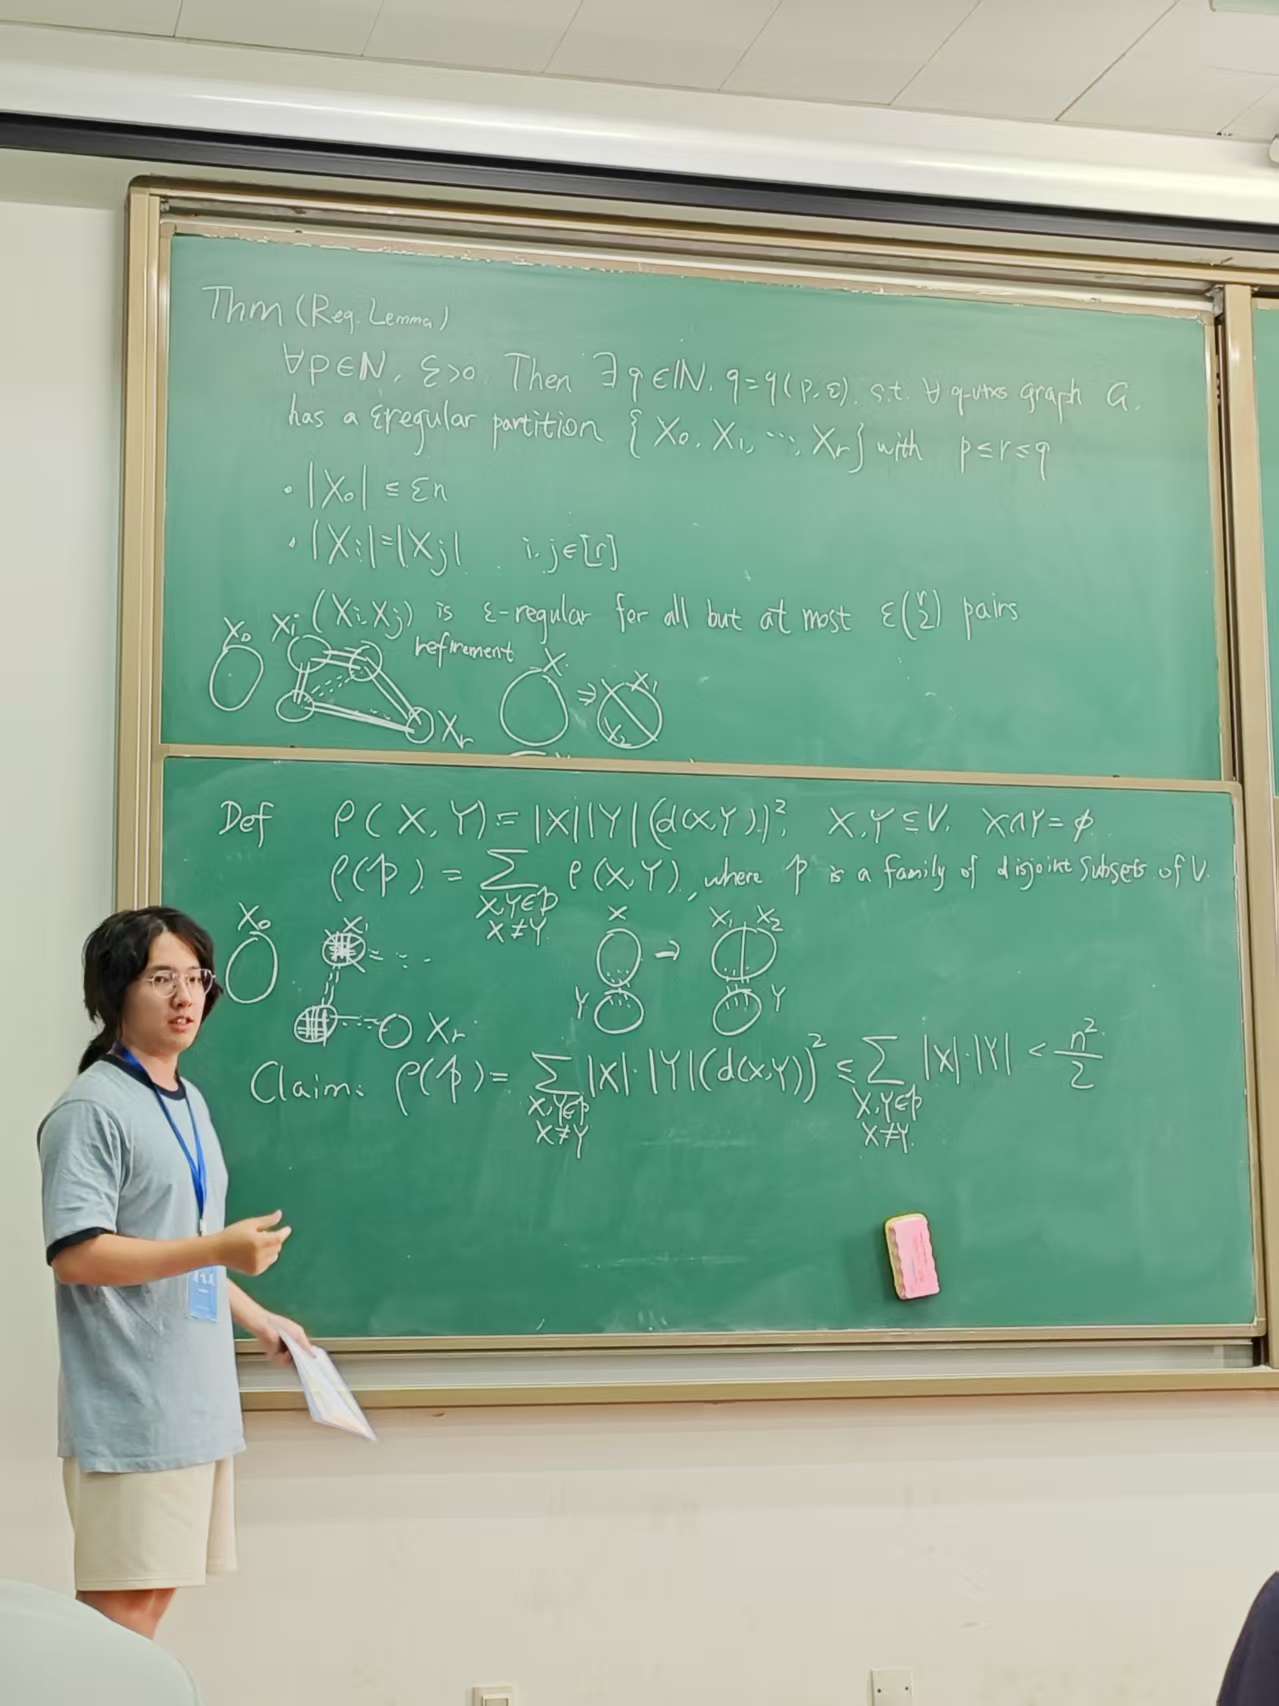 Thm (Reg. Lemma)
∀p∈ℕ, ε>0 Then ∃ q∈ℕ, q=q(p,ε), s.t. ∀ q-vtxs graph G,
has a εregular partition {X₀, X₁, ⋯, Xᵣ} with p≤r≤q
· |X₀| ≤ εn
· |Xᵢ|=|Xⱼ| i,j∈[r]
(Xᵢ,Xⱼ) is ε-regular for all but at most ε(r 2) pairs
X₀ X₁ Xᵣ refinement X ⇒ X₁ X₂
Def ρ(X,Y)=|X||Y|(d(X,Y))², X,Y⊆V, X∩Y=φ
ρ(𝓅) = ∑ ρ(X,Y), where 𝓅 is a family of disjoint subsets of V.
X,Y∈𝓅
X≠Y
X₀ X₁ ... Xᵣ X Y → X₁ X₂ Y
Claim: ρ(𝓅)= ∑ |X|·|Y|(d(X,Y))² ≤ ∑ |X|·|Y| < n²/2
X,Y∈𝓅 X,Y∈𝓅
X≠Y X≠Y